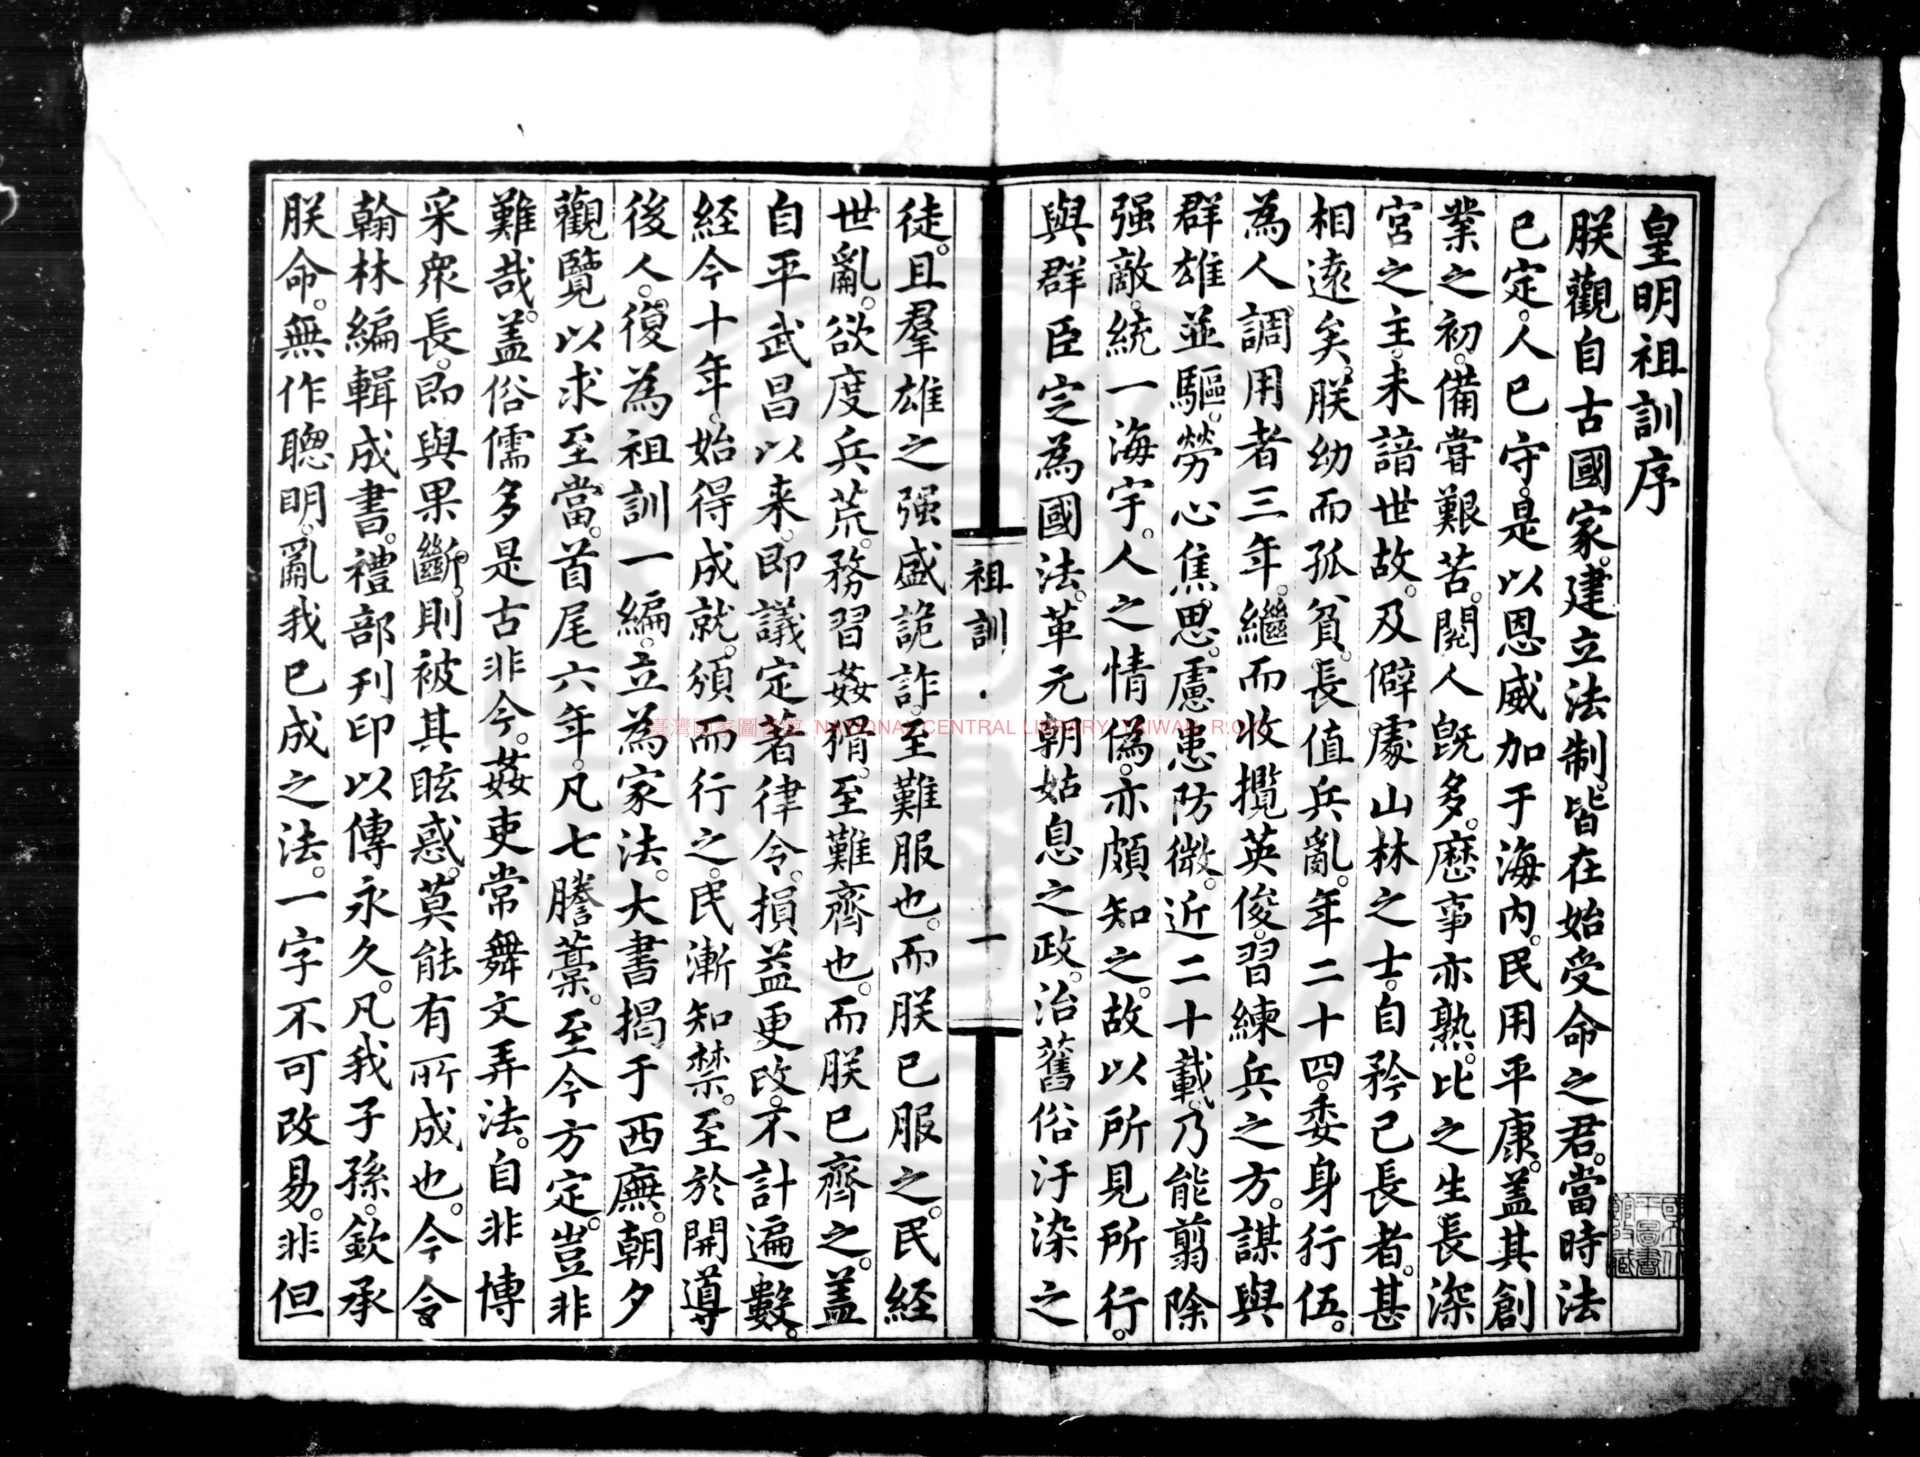 皇明祖訓序
朕觀自古國家。建立法制。皆在始受命之君。當時法
已定。人已守。是以恩威加于海內。民用平康。盖其創
業之初。備甞艱苦。閱人旣多。歷事亦熟。比之生長深
宮之主。未諳世故。及僻處山林之士。自矜己長者。甚
相遠矣。朕幼而孤貧。長值兵亂。年二十四。委身行伍。
為人調用者三年。繼而收攬英俊。習練兵之方。謀與
群雄並驅。勞心焦思。慮患防微。近二十載。乃能翦除
强敵。統一海宇。人之情偽。亦頗知之。故以所見所行。
與群臣定為國法。革元朝姑息之政。治舊俗汙染之
徒。且羣雄之强盛詭詐。至難服也。而朕已服之。民經
世亂。欲度兵荒。務習姦猾。至難齊也。而朕已齊之。盖
自平武昌以来。即議定著律令。損益更改。不計遍數。
經今十年。始得成就。頒而行之。民漸知禁。至於開導
後人。復為祖訓一編。立為家法。大書揭于西廡。朝夕
觀覽以求至當。首尾六年。凡七謄藁。至今方定。豈非
難哉。盖俗儒多是古非今。姦吏常舞文弄法。自非博
采衆長。即與果斷。則被其眩惑。莫能有所成也。今令
翰林編輯成書。禮部刋印以傳永久。凡我子孫。欽承
朕命。無作聰明。亂我已成之法。一字不可改易。非但
祖訓
一
臺灣國家圖書館 NATIONAL CENTRAL LIBRARY, TAIWAN, R.O.C.